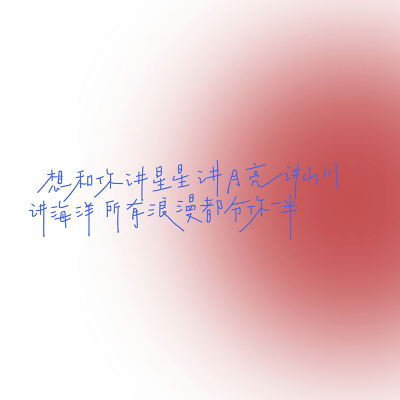 想和你讲星星讲月亮讲山川
讲海洋所有浪漫都分你一半